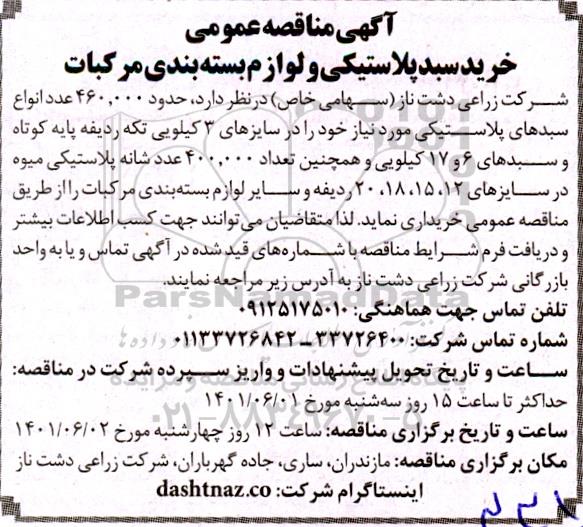 آگهی مناقصه عمومی
خرید سبد پلاستیکی و لوازم بسته‌بندی مرکبات
شرکت زراعی دشت ناز (سهامی خاص) در نظر دارد، حدود ۴۶۰,۰۰۰ عدد انواع
سبدهای پلاستیکی مورد نیاز خود را در سایزهای ۳ کیلویی تکه ردیفه پایه کوتاه
و سبدهای ۶ و ۱۷ کیلویی و همچنین تعداد ۴۰۰,۰۰۰ عدد شانه پلاستیکی میوه
در سایزهای ۱۲، ۱۵، ۱۸، ۲۰ ردیفه و سایر لوازم بسته‌بندی مرکبات را از طریق
مناقصه عمومی خریداری نماید. لذا متقاضیان می‌توانند جهت کسب اطلاعات بیشتر
و دریافت فرم شرایط مناقصه با شماره‌های قید شده در آگهی تماس و یا به واحد
بازرگانی شرکت زراعی دشت ناز به آدرس زیر مراجعه نمایند.
ParsNamadData
تلفن تماس جهت هماهنگی: ۰۹۱۲۵۱۷۵۰۱۰
شماره تماس شرکت: ۳۳۷۲۶۴۰۰ ــ ۰۱۱۳۳۷۲۶۸۴۲
ساعت و تاریخ تحویل پیشنهادات و واریز سپرده شرکت در مناقصه:
پایگاه اطلاع رسانی مناقصه و مزایده
حداکثر تا ساعت ۱۵ روز سه‌شنبه مورخ ۱۴۰۱/۰۶/۰۱
۰۲۱-۸۸۳۴۹۶۷۰-۵
ساعت و تاریخ برگزاری مناقصه: ساعت ۱۲ روز چهارشنبه مورخ ۱۴۰۱/۰۶/۰۲
مکان برگزاری مناقصه: مازندران، ساری، جاده گهرباران، شرکت زراعی دشت ناز
اینستاگرام شرکت: dashtnaz.co